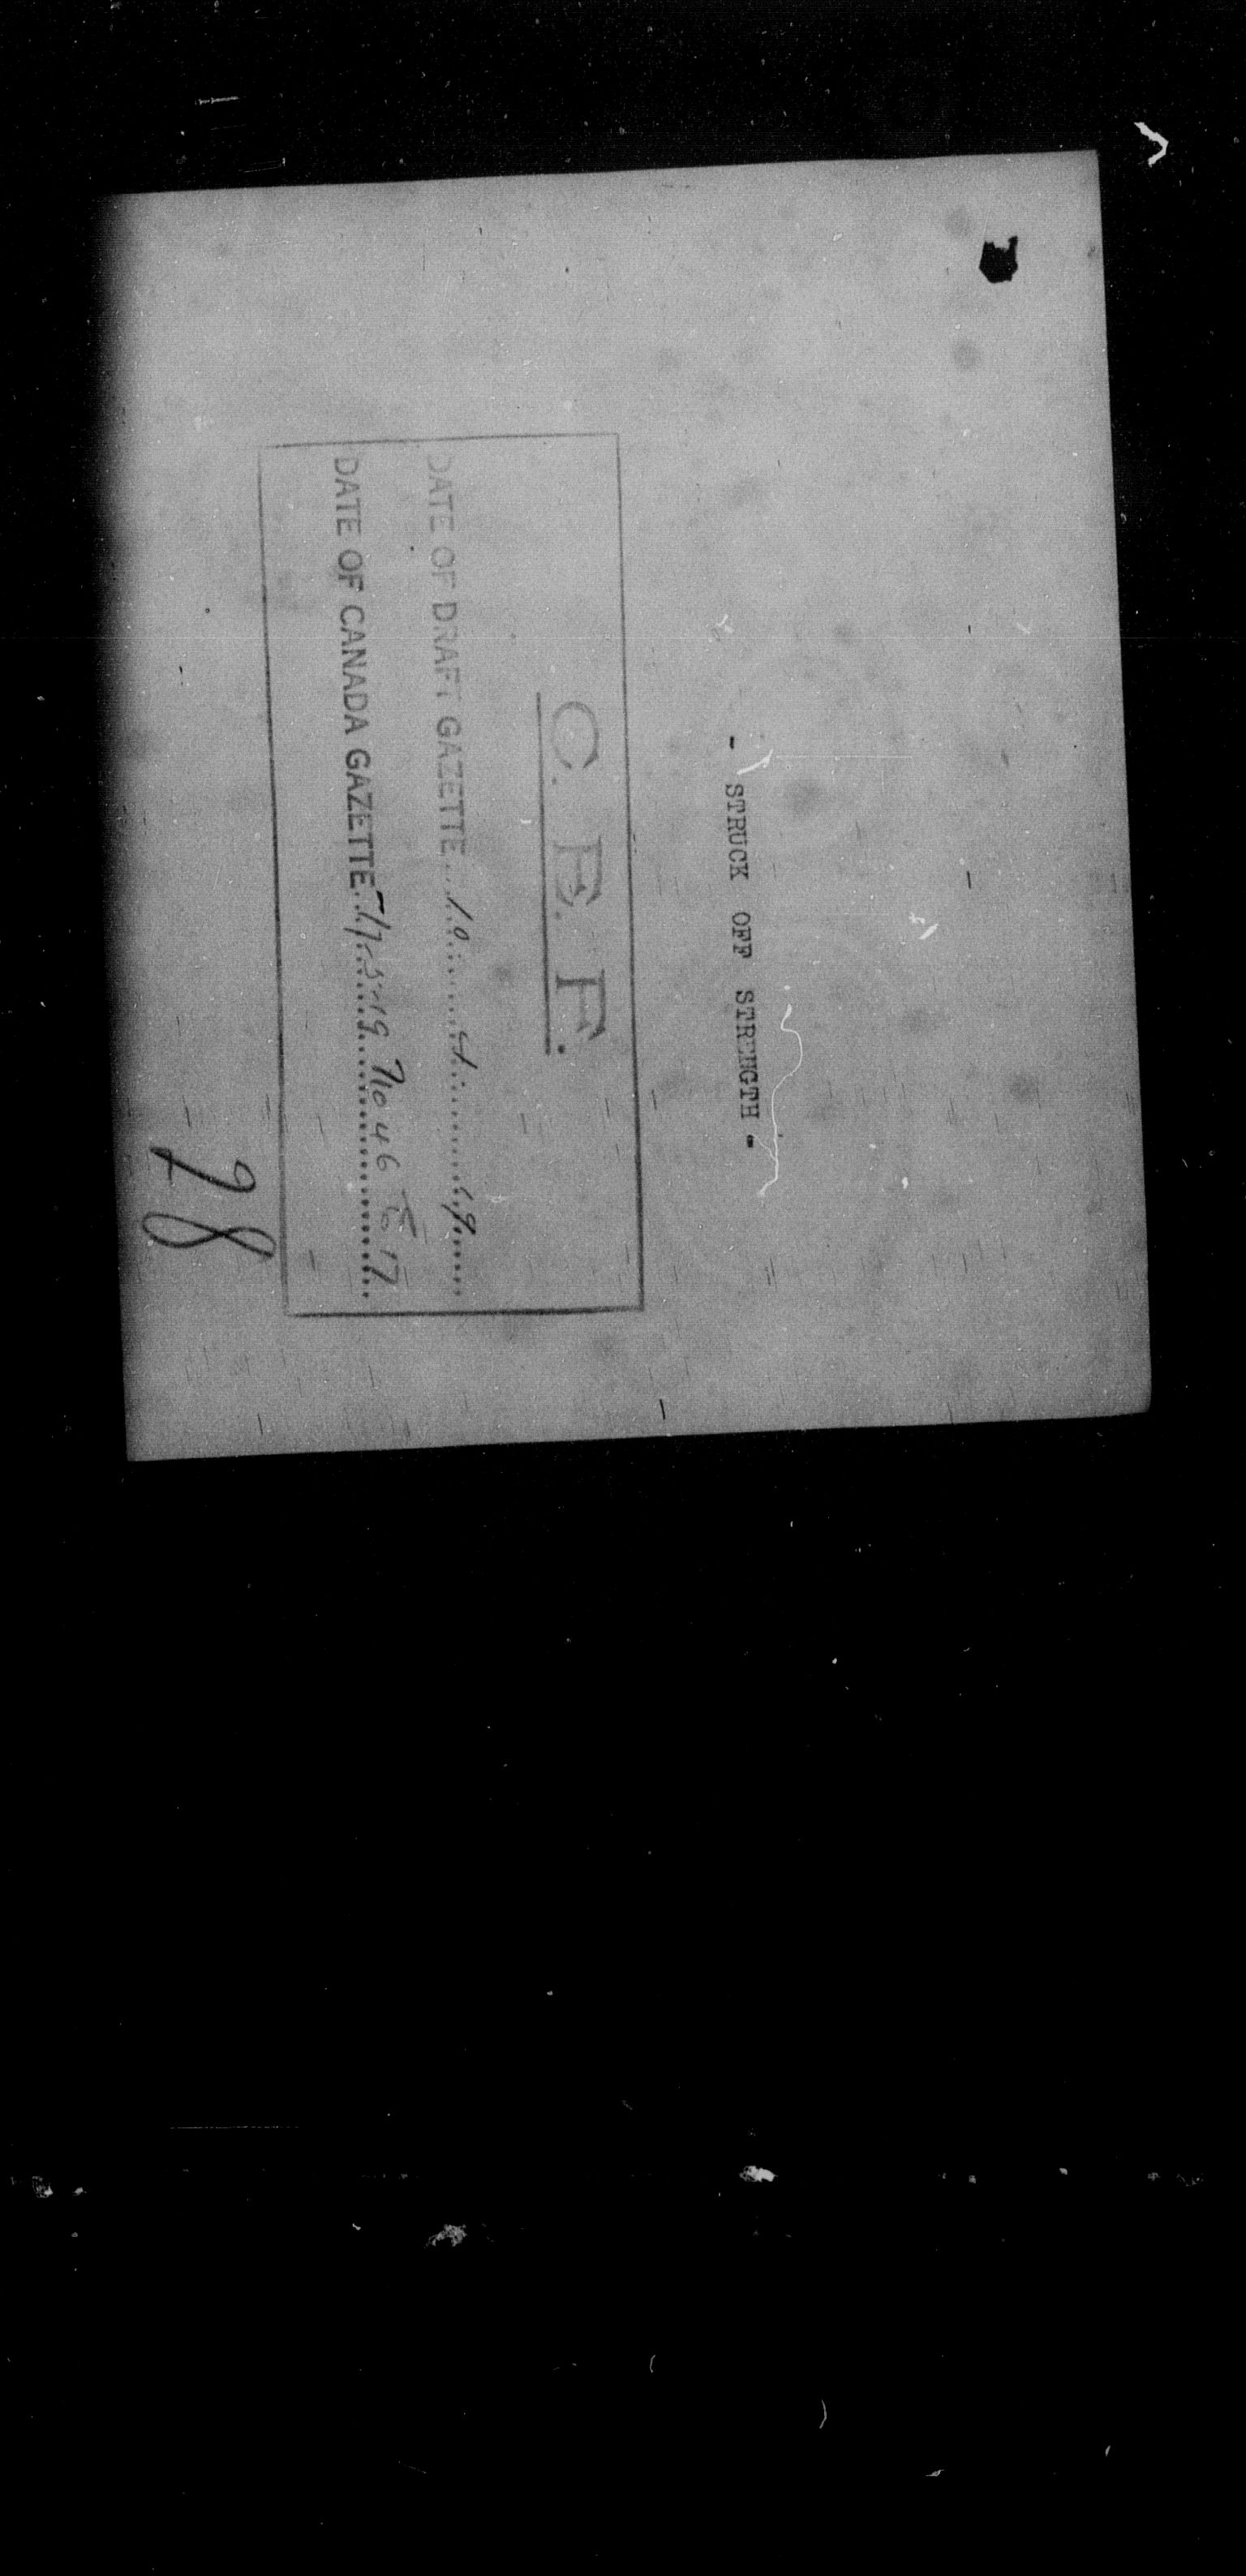 - STRUCK OFF STRENGTH -
C. E. F.
DATE OF DRAFT GAZETTE ... 10 ... 4 ... 19 ...
DATE OF CANADA GAZETTE ... 17-5-19 No 46
28